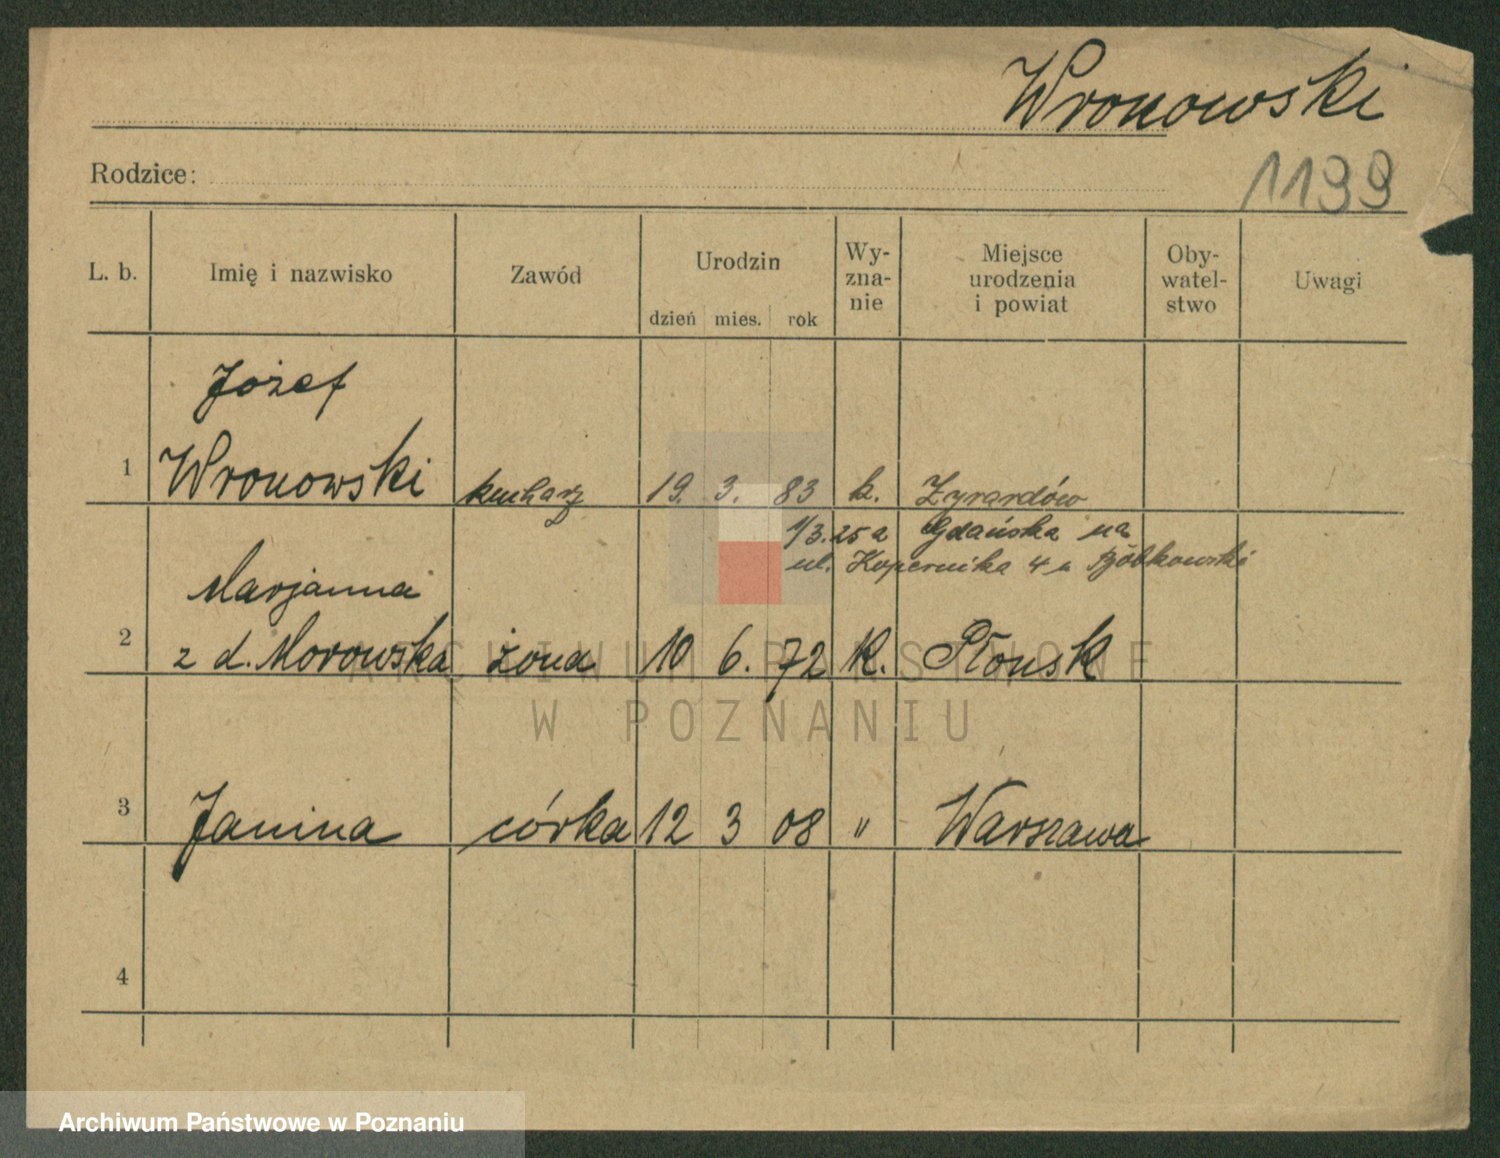 Wronowski
Rodzice:
1199
L. b.
Imię i nazwisko
Zawód
Urodzin
dzień mies. rok
Wy-
zna-
nie
Miejsce
urodzenia
i powiat
Oby-
watel-
stwo
Uwagi
Józef
1 Wronowski kucharz 19. 3. 83 k. Żyrardów
1/3.25 a Gdańska na
ul. Kopernika 4 u
Marjanna
2 z d. Morowska żona 10 6. 72 k. Płońsk
3 Janina córka 12 3 08 " Warszawa
4
ARCHIWUM PAŃSTWOWE
W POZNANIU
Archiwum Państwowe w Poznaniu